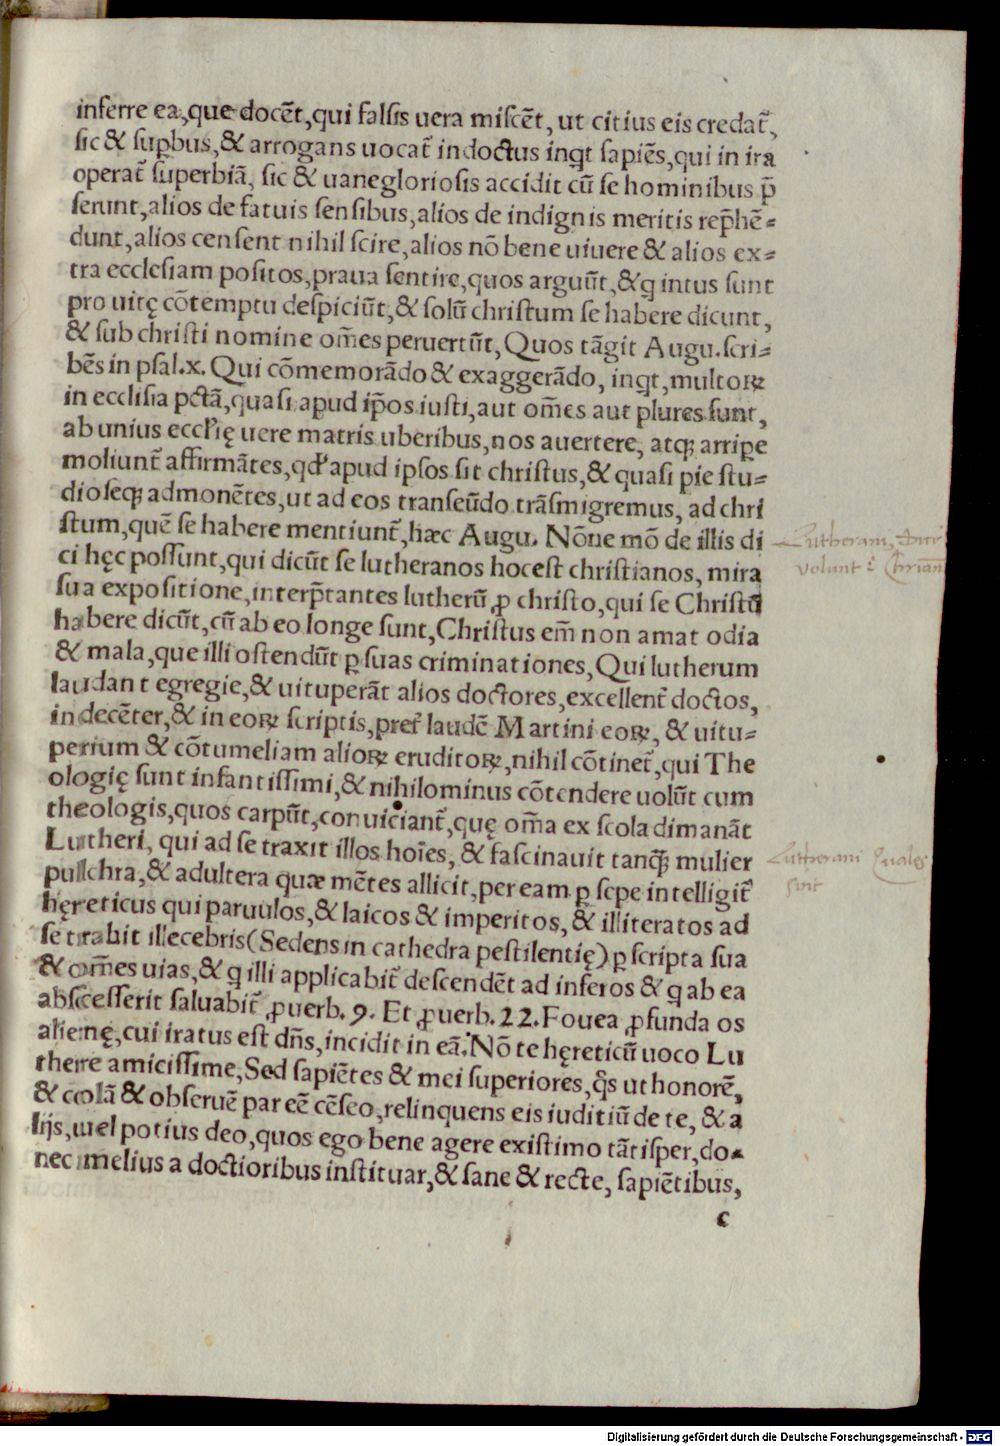 inferre ea,que docēt,qui falsis uera miscēt, ut citius eis credat᷑,
sic & sup̱bus,& arrogans uocat᷑ indoctus inq̱t sapiēs,qui in ira
operat᷑ superbiā, sic & uanegloriosis accidit cū se hominibus p̄
ferunt,alios de fatuis sensibus,alios de indignis meritis rep̄hē-
dunt,alios censent nihil scire,alios nō bene uiuere & alios ex-
tra ecclesiam positos,praua sentire,quos arguūt,&q̱ intus sunt
pro uitę cōtemptu despiciūt,& solū christum se habere dicunt,
& sub christi nomine om̄es peruertūt, Quos tāgit Augu.scri-
bēs in psal.x. Qui cōmemorādo & exaggerādo, inq̱t,multoꝝ
in ecclisia pctā,quasi apud ip̄os iusti,aut om̄es aut plures sunt,
ab unius eccl'ię uere matris uberibus,nos auertere, atqꝫ arrip̱e
moliunt᷑ affirmātes,qd' apud ipsos sit christus,& quasi pie stu-
dioseqꝫ admonētes,ut ad eos transeūdo trāsmigremus, ad chri
stum,quē se habere mentiunt᷑,hæc Augu. Nōne mō de illis di
ci hęc possunt,qui dicūt se lutheranos hocest christianos, mira
sua expositione,interp̄tantes lutherū ꝓ christo,qui se Christū
habere dicūt,cū ab eo longe sunt,Christus em̄ non amat odia
& mala,que illi ostendūt ꝑ suas criminationes,Qui lutherum
laudant egregie,& uituperāt alios doctores,excellent᷑ doctos,
indecēter,& in eoꝝ scriptis,pret᷑ laudē Martini eoꝝ, & uitu-
perium & cōtumeliam alioꝝ eruditoꝝ,nihil cōtinet᷑,qui The
ologię sunt infantissimi,& nihilominus cōtendere uolūt cum
theologis,quos carpūt,conuiciant᷑,quę om̄a ex scola dimanāt
Lutheri, qui ad se traxit illos hoīes, & fascinauit tanqꝫ mulier
pulchra,& adultera quæ mētes allicit,per eam ꝑ sepe intelligit᷑
hęreticus qui paruulos,& laicos & imperitos, & illiteratos ad
se trahit illecebris(Sedens in cathedra pestilentię)ꝑ scripta sua
& om̄es uias,& q̱ illi applicabit᷑ descendēt ad inferos & q̱ ab ea
abscesserit saluabit᷑ ꝓuerb.9. Et ꝓuerb.22.Fouea ꝓfunda os
alienę,cui iratus est dn̄s,incidit in eā. Nō te hęreticū uoco Lu
there amicissime,Sed sapiētes & mei superiores,q̄s ut honorē,
& colā & obseruē par eē cēseo,relinquens eis iuditiū de te, & a
lijs,uel potius deo,quos ego bene agere existimo tātisper,do-
nec melius a doctioribus instituar,& sane & recte, sapiētibus,
c
Lutherani
volunt
Lutherani Quales
sint
Digitalisierung gefördert durch die Deutsche Forschungsgemeinschaft - DFG